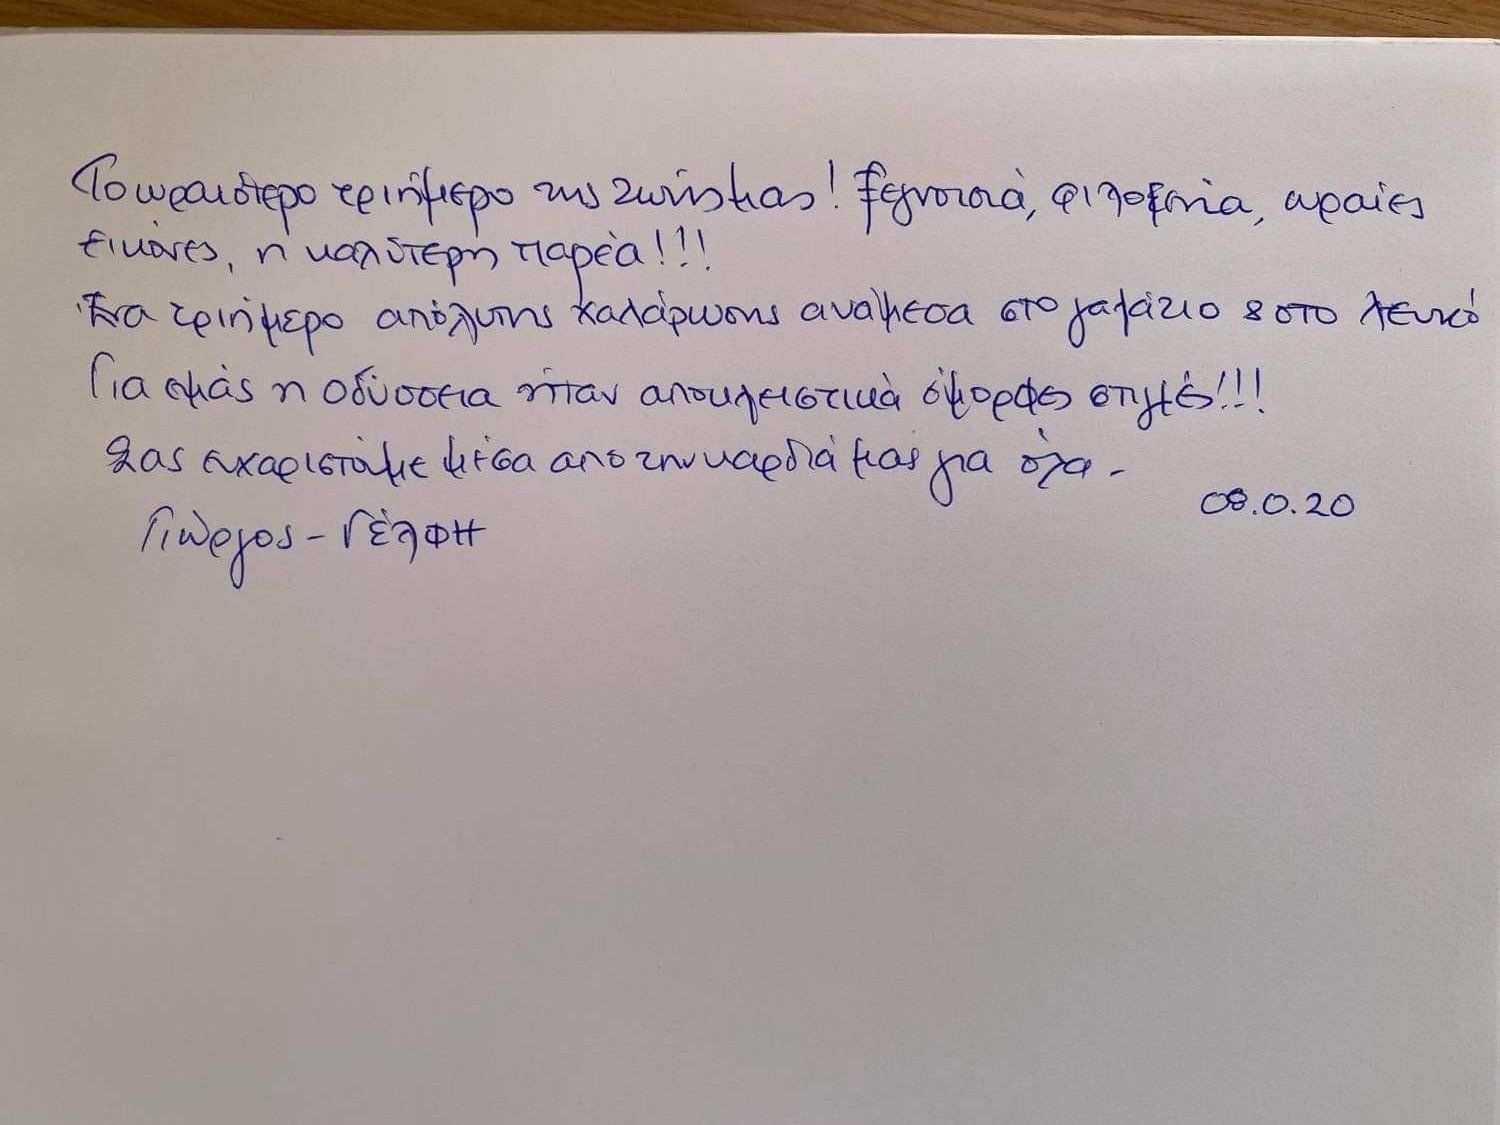 Το ωραιότερο τριήμερο της ζωής μας! Ξεγνοισιά, φιλοξενία, ωραίες
εικόνες, η καλύτερη παρέα!!!
Ένα τριήμερο απόλυτης χαλάρωσης ανάμεσα στο γαλάζιο & στο λευκό
Για εμάς η Οδύσσεια ήταν αποκλειστικά όμορφες στιγμές!!!
Σας ευχαριστούμε μέσα από την καρδιά μας για όλα -
08.0.20
Γιώργος - Γέλφη